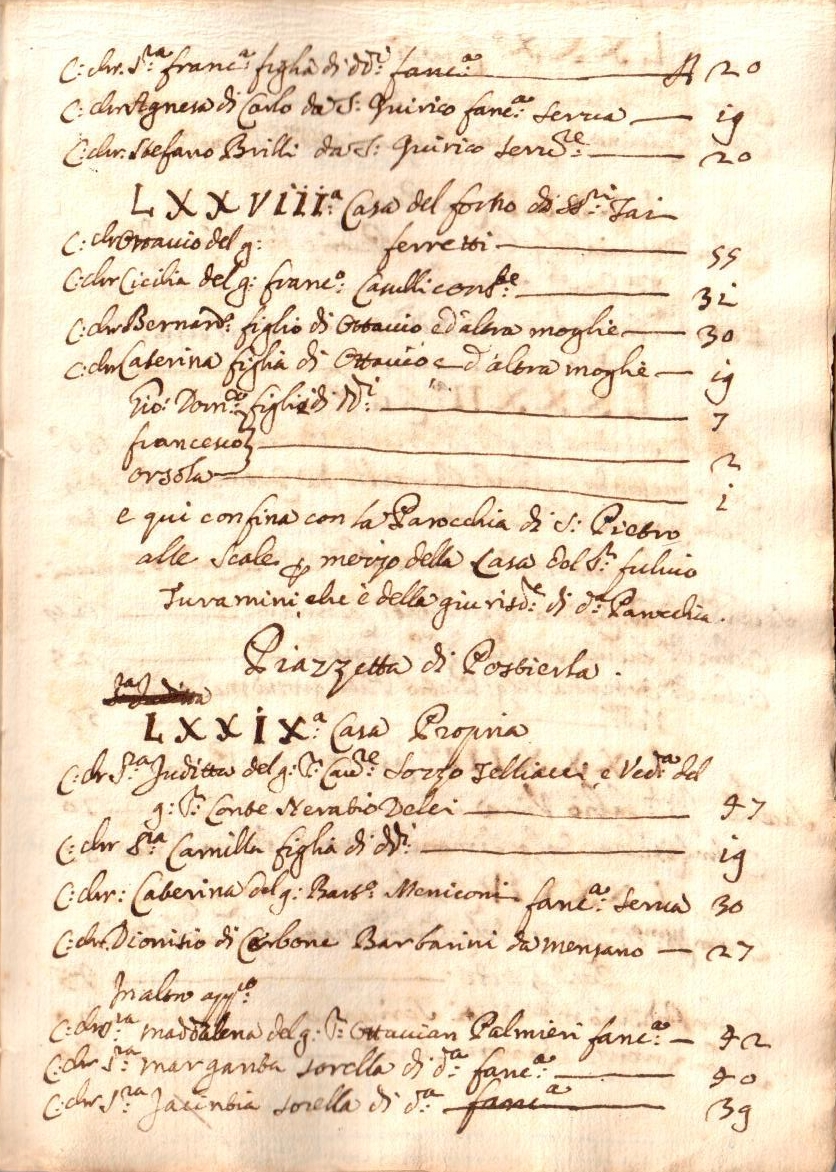 C: chr. S.ra Franc.a figlia di dd.i fanc.a 20
C: chr Agnesa di Carlo da S: Quirico fanc.a serua 19
C: chr. Stefano Brilli da S: Quirico seru.re 20
LXXVIIII.a Casa del forno di SS.ri Tai
C: chr Ottauio del g: ferretti 55
C: chr Cicilia del g: franc.o Casulli cons.te 31
C: chr Bernard.o figlio di Ottauio e d'altra moglie 30
C: chr Caterina figlia di Ottauio e d'altra moglie 19
Gio: Dom.co figli di dd.i 7
francesco 2
orsola 1
e qui confina con la Parocchia di S: Pietro
alle Scale p mezzo della Casa del S.r fuluio
Turamini che è della giurisd.e di d.a Parochia.
Piazzetta di Postierla.
S.ra Juditta
LXXIX.a Casa Propria
C: chr S.ra Juditta del g: S.r Cau.re Sozzo Telliacci e Ved.a del
g: S.r Conte Neratio Delci 47
C: chr S.ra Camilla figlia di dd.i 19
C: chr: Caterina del g: Bart.o Meniconi fanc.a serua 30
C: chr. Dionisio di Carbone Barbarini da mensano 27
In altro app.to
C: chr S.ra maddalena del g: S.r Ottauian Palmieri fanc.a 42
C: chr S.ra margarita sorella di d.a fanc.a 40
C: chr S.ra Jacintia sorella di d.a fanc.a 39